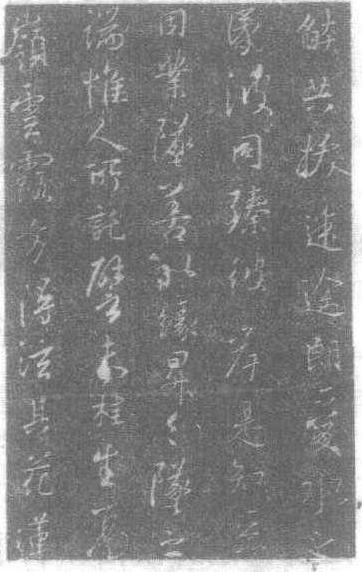 焰共拔迷途朗愛水之
昏波同臻彼岸是知惡
因業墜善以緣昇々墜之
端惟人所託譬夫桂生高
嶺雲露方得泫其花蓮